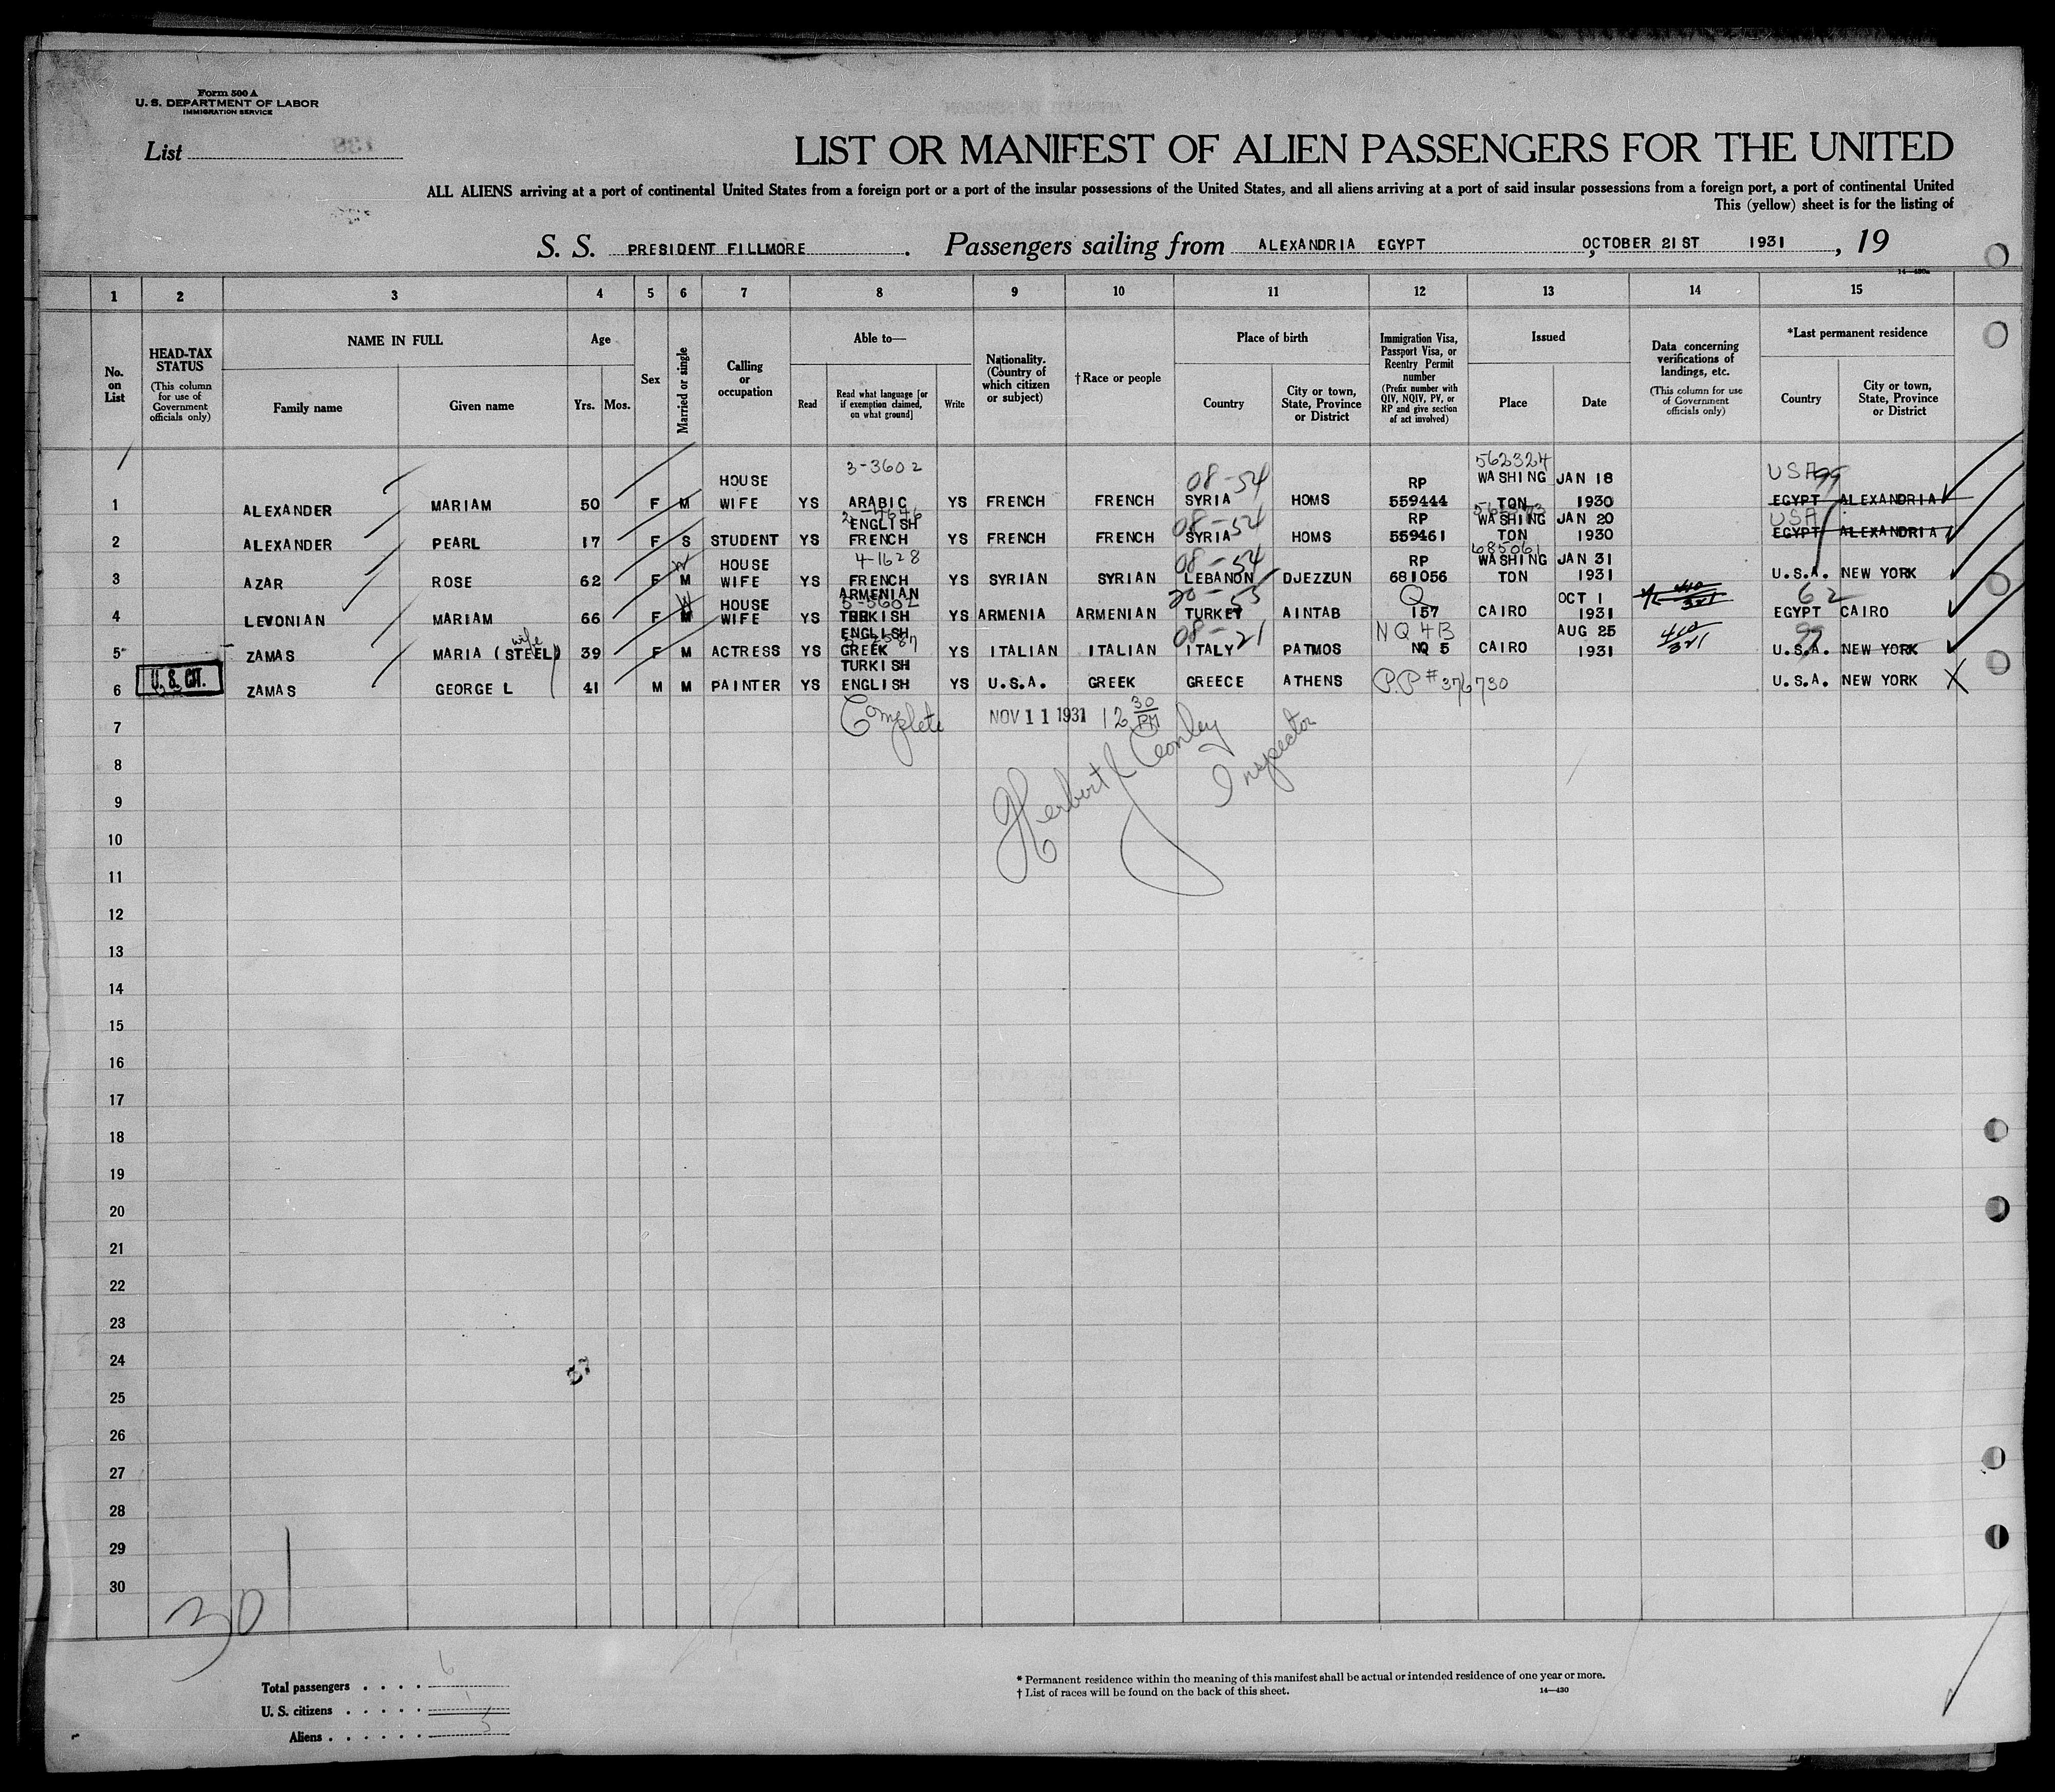 Form 500 A
U. S. DEPARTMENT OF LABOR
IMMIGRATION SERVICE
List
LIST OR MANIFEST OF ALIEN PASSENGERS FOR THE UNITED
ALL ALIENS arriving at a port of continental United States from a foreign port or a port of the insular possessions of the United States, and all aliens arriving at a port of said insular possessions from a foreign port, a port of continental United
This (yellow) sheet is for the listing of
S. S. PRESIDENT FILLMORE. Passengers sailing from ALEXANDRIA EGYPT, OCTOBER 21ST 1931, 19
14—430a
1 2 3 4 5 6 7 8 9 10 11 12 13 14 15
No. on List
HEAD-TAX STATUS (This column for use of Government officials only)
NAME IN FULL
Family name Given name
Age
Yrs. Mos.
Sex
Married or single
Calling or occupation
Able to—
Read Read what language [or if exemption claimed, on what ground] Write
Nationality. (Country of which citizen or subject)
†Race or people
Place of birth
Country City or town, State, Province or District
Immigration Visa, Passport Visa, or Reentry Permit number (Prefix number with QIV, NQIV, PV, or RP and give section of act involved)
Issued
Place Date
Data concerning verifications of landings, etc. (This column for use of Government officials only)
*Last permanent residence
Country City or town, State, Province or District
3-3602 08-54 562324 USA 99
HOUSE RP WASHING JAN 18
1 ALEXANDER MARIAM 50 F M WIFE YS ARABIC YS FRENCH FRENCH SYRIA HOMS 559444 TON 1930 EGYPT ALEXANDRIA
2-4646 08-54 USA
ENGLISH RP WASHING JAN 20
2 ALEXANDER PEARL 17 F S STUDENT YS FRENCH YS FRENCH FRENCH SYRIA HOMS 559461 TON 1930 EGYPT ALEXANDRIA
W 4-1628 08-54 685061
HOUSE RP WASHING JAN 31
3 AZAR ROSE 62 F M WIFE YS FRENCH YS SYRIAN SYRIAN LEBANON DJEZZUN 681056 TON 1931 U.S.A. NEW YORK
W ARMENIAN 5-5602 20-53 Q 62
HOUSE OCT 1
4 LEVONIAN MARIAM 66 F M WIFE YS TURKISH YS ARMENIA ARMENIAN TURKEY AINTAB 157 CAIRO 1931 EGYPT CAIRO
wife ENGLISH 08-21 NQ 4B AUG 25 410/321 99
5 ZAMAS MARIA (STEEL) 39 F M ACTRESS YS GREEK YS ITALIAN ITALIAN ITALY PATMOS NQ 5 CAIRO 1931 U.S.A. NEW YORK
U. S. CIT. TURKISH
6 ZAMAS GEORGE L 41 M M PAINTER YS ENGLISH YS U.S.A. GREEK GREECE ATHENS P.P # 376730 U.S.A. NEW YORK X
7 Complete NOV 11 1931 12 30 PM
Herbert Conley
Inspector
8
9
10
11
12
13
14
15
16
17
18
19
20
21
22
23
24
25
26
27
28
29
30
301
Total passengers . . . . 6
U. S. citizens . . . . . 1
Aliens . . . . . . 5
* Permanent residence within the meaning of this manifest shall be actual or intended residence of one year or more.
† List of races will be found on the back of this sheet.
14—430